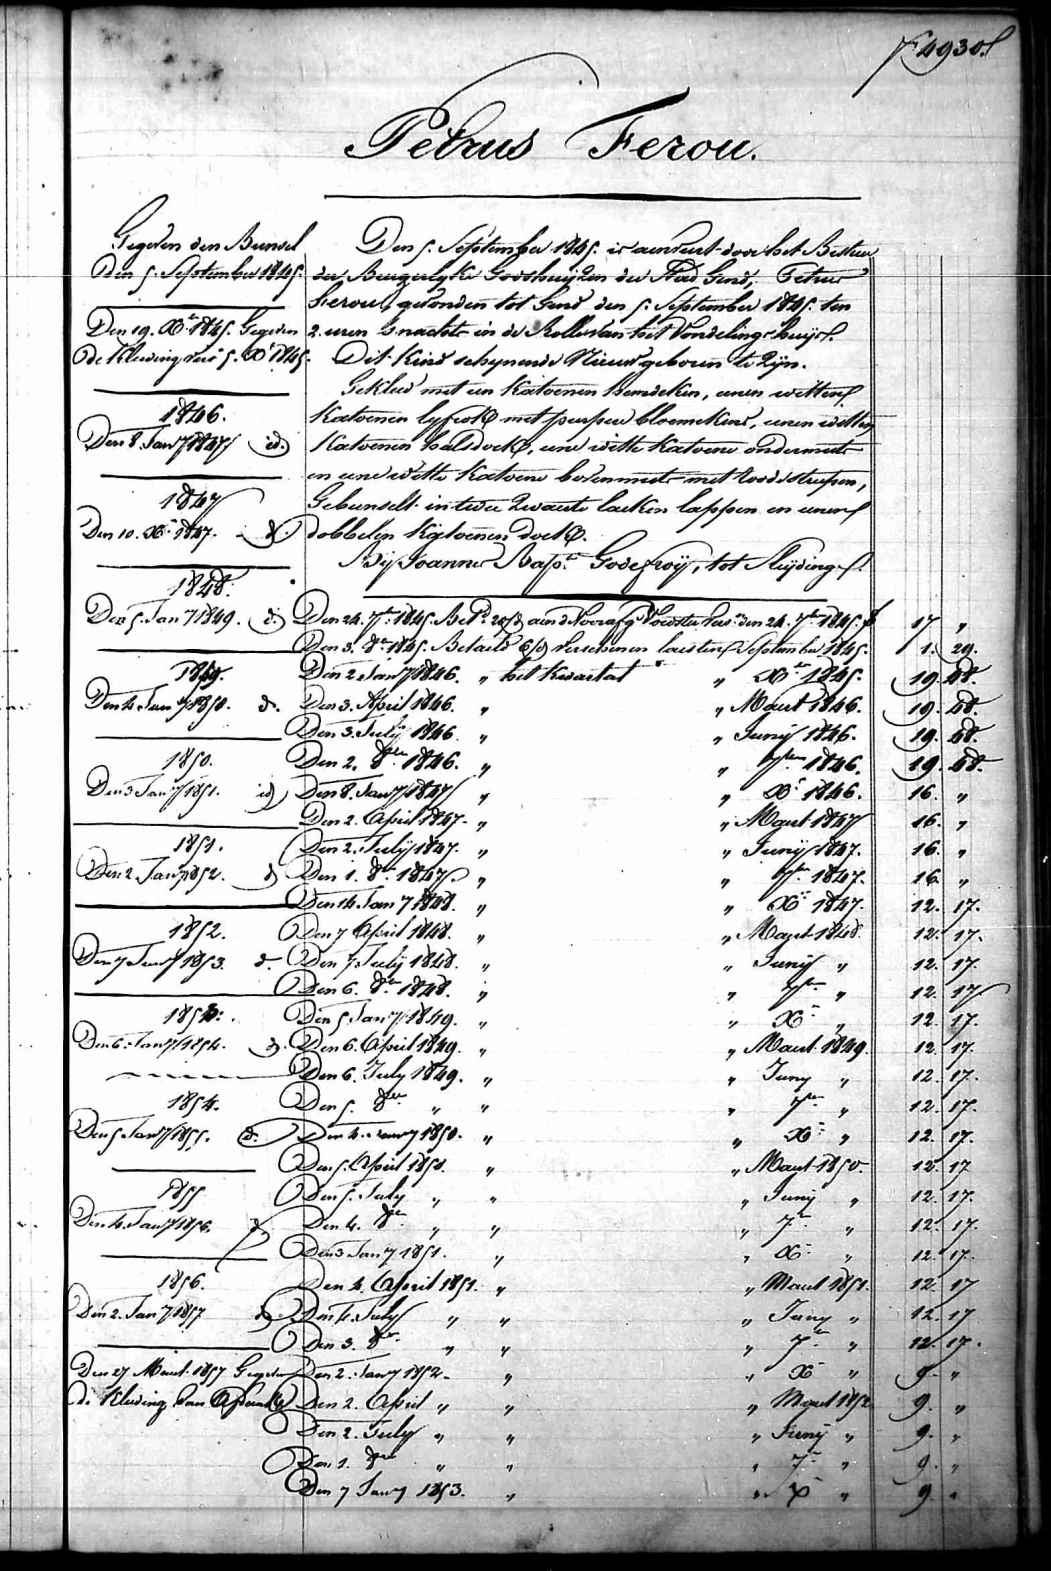 F 4930
Petrus Ferou.
Gegeven den Bunsel
Den 5. September 1845.
Den 19. Xbr 1845. Gegeven
de Kleeding van 5. Xbr 1845.
1846.
Den 8. Jany 1847 id.
1847
Den 10. Xbr 1847. d.
1848.
Den 5. Jany 1849. d.
1849.
Den 4. Jany 1850. d.
1850.
Den 3 Jany 1851. id
1851.
Den 2. Jany 1852. d
1852.
Den 7 Jany 1853. d.
1853.
Den 6. Jany 1854. d.
1854.
Den 5 Jany 1855. d.
1855
Den 4. Jany 1856. d
1856.
Den 2. Jany 1857 d
Den 27 Maart 1857 Gegeven
de Kleeding van
Den 5. September 1845. is aenveurt door het Bestuer
der Burgerlyke Godshuijzen der Stad Gend, Petrus
Ferou, gevonden tot Gend den 5. September 1845. ten
2. uren 's nachts in de Rolle van het Vondelingshuijs.
Dit Kind schynende Nieuw geboren te Zijn.
Gekleed met een Katoenen hemdeken, eenen witten
Katoenen lyfrok met purpere bloemekens, eenen witten
Katoenen halsdoek, eene witte Katoene ondermuts
en eene witte Katoene bovenmuts met roode streepen,
Gebunselt in twee Zwarte laeken lappen en eenen
dobbelen Katoenen doek.
Bij Joannes Bapt. Godefroij, tot Sleydinge.
Den 24. 7br 1845. Bet. aen d'Voorafg. Voedster den 24. 7br 1845. 17 "
Den 3. 8br 1845. Betaeld verschenen laesten September 1845. 1. 29.
Den 2 Jany 1846. " het Kwartael " Xbr 1845. 19. 48.
Den 3. April 1846. " " Maart 1846. 19. 48.
Den 3. July 1846. " " Juny 1846. 19. 48.
Den 2. 8ber 1846. " " 7ber 1846. 19. 48.
Den 8. Jany 1847 " " Xr 1846. 16. "
Den 2. April 1847. " " Maart 1847 16. "
Den 2. July 1847. " " Juny 1847. 16. "
Den 1. 8br 1847. " " 7br 1847. 16. "
Den 14. Jany 1848. " " Xbr 1847. 12. 17.
Den 7 April 1848. " " Maart 1848. 12. 17.
Den 7. July 1848. " " Juny " 12. 17.
Den 6. 8br 1848. " " 7ber " 12. 17
Den 5 Jany 1849. " " Xr " 12. 17.
Den 6. April 1849. " " Maart 1849. 12. 17.
Den 6. July 1849. " " Juny " 12. 17.
Den 5. 8ber " " " 7br " 12. 17.
Den 4. Jany 1850. " " Xr " 12. 17.
Den 5. April 1850. " " Maart 1850. 12. 17
Den 5. July " " " Juny " 12. 17.
Den 4. 8ber " " " 7br " 12. 17.
Den 3 Jany 1851. " " Xr " 12. 17.
Den 4. April 1851. " " Maart 1851. 12. 17
Den 4. July " " " Juny " 12. 17
Den 3. 8br " " " 7br " 12. 17.
Den 2. Jany 1852. " " X " 9. "
Den 2. April " " " Maart 1852 9. "
Den 2. July " " " Juny " 9. "
Den 1. 8ber " " " 7br " 9. "
Den 7 Jany 1853. " " X " 9 "